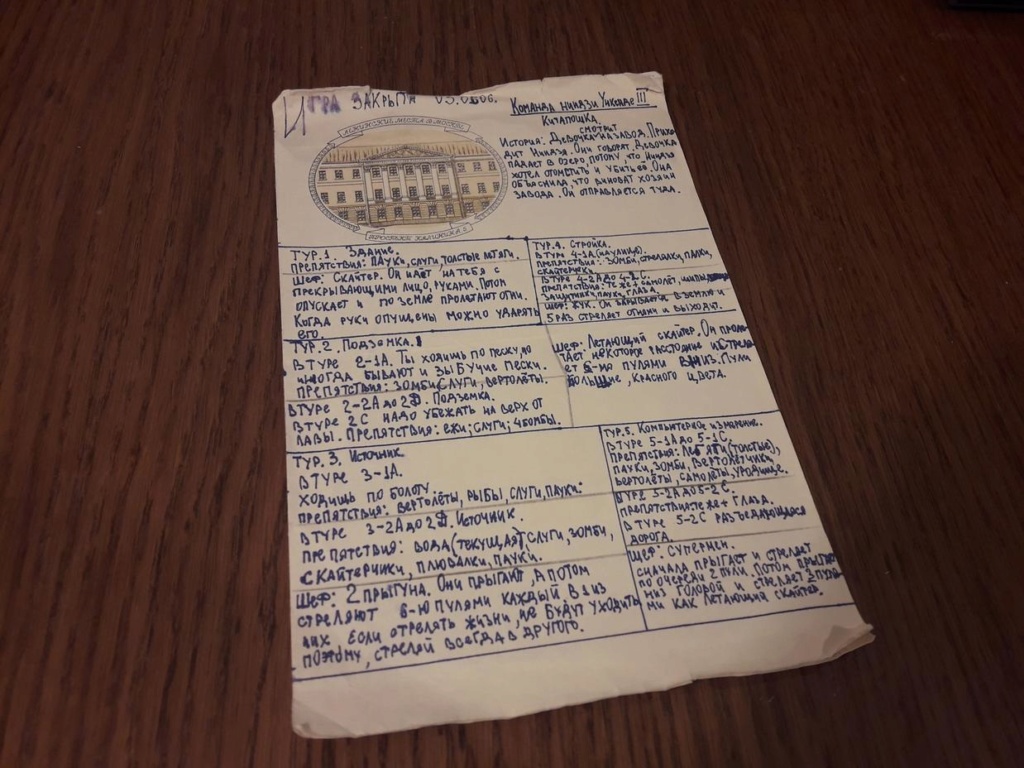 Игра закрыта 03.0806.
Команда ниндзи Уикенде III
Китапошка
смотрит
История: Девочка на завод. Прихо-
дит Ниндзя. Они говорят. Девочка
падает в озеро, потому, что ниндзя
хотел отомстить и убить её. Она
объяснила, что виноват хозяин
завода. Он отправляется туда.
Тур.1. Здание.
Препятствия: пауки, слуги, толстые мтяги.
Шеф: Скайтер. Он идёт на тебя с
прекрывающими лицо, руками. Потом
опускает и по земле пролетают огни.
Когда руки опущены можно ударять
его.
Тур.2. Подземка.
В туре 2-1А. Ты ходишь по песку, но
иногда бывают и зыбучие пески.
Препятствия: зомби, слуги, вертолёты.
В туре 2-2А до 2D. Подземка.
В туре 2С надо убежать на верх от
лавы. Препятствия: ежи; слуги; 4бомбы.
Тур. 3. Источник
В туре 3-1А.
Ходишь по болоту.
Препятствия: вертолёты, рыбы, слуги, пауки.
В туре 3-2А до 2D. Источник.
Препятствия: вода (текущая), слуги, зомби,
скайтерчики, плювалки, пауки.
Шеф: 2 прыгуна. Они прыгают, а потом
стреляют 6-ю пулями каждый в 1 из
них. Если отрелять жизни, не будут уходить
поэтому, стреляй всегда в другого.
Тур.4. Стройка.
В туре 4-1А (на улице).
Препятствия: зомби, стрелялки, палки,
скайтерчики
В туре 4-2А до 4-2С.
Препятствия: те же + самолёт, шипы,
защитник, паук, глаза.
Шеф: Жук. Он зарывает в землю и
5 раз стреляет огнями и выходы.
Шеф: Летающий скайтер. Он проле-
тает некоторое расстояние и стреля-
ет 6-мю пулями вниз. Пули
большие, красного цвета.
Тур.5. Компьютерное измерение.
В туре 5-1А до 5-1С.
Препятвия: (толстые),
пауки, зомби, вертолётчики,
вертолёты, самолёты, уродище.
В туре 5-2А до 5-2С.
Препятствия: те же + глаза.
В туре 5-2С разъедающаяся
дорога.
Шеф: Супермен.
Сначала прыгает и стреляет
по очереди 2 пули. Потом прыгает
низ головой и стреляет 3 пуля-
ми как летающий скайтер.